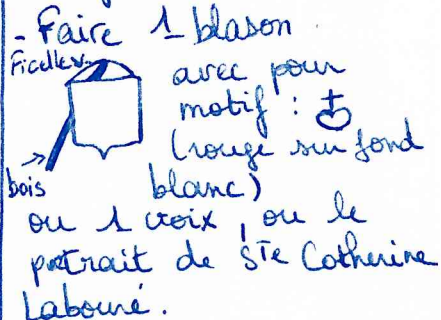 - Faire 1 blason
Ficelles
avec pour
motif :
(rouge sur fond
bois
blanc)
ou 1 croix, ou le
portrait de Ste Catherine
Labouré.